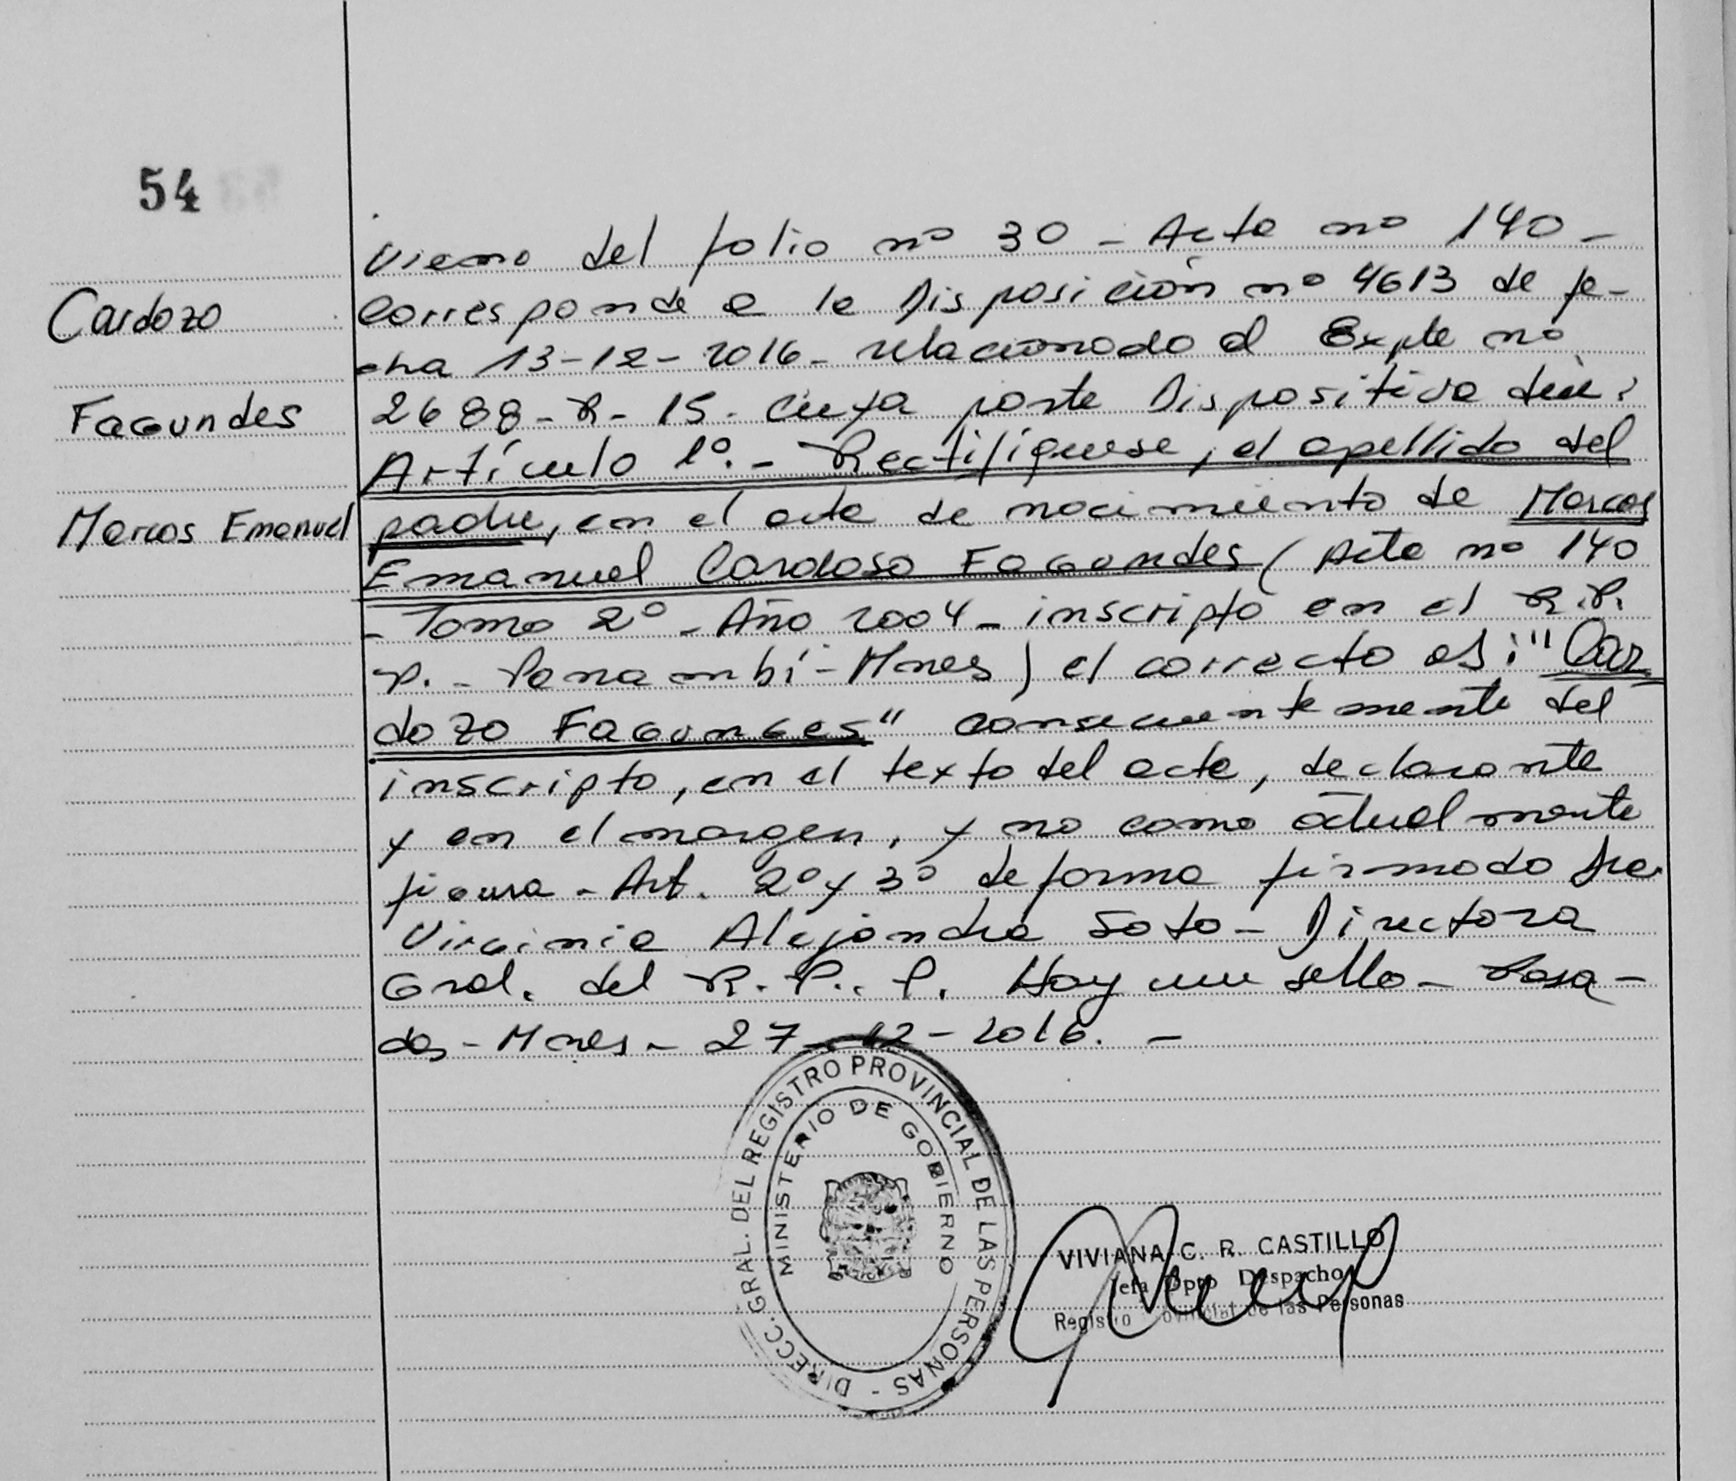 54
Cardozo
Fagundes
Marcos Emanuel
Viene del folio nº 30 - Acta nº 140 -
Corresponde a la Disposición nº 4613 de fe-
cha 13-12-2016- relacionado al Expte nº
2688-R-15- Cuya parte Dispositiva dice:
Artículo 1º.- Rectifíquese, el apellido del
padre, en el acta de nacimiento de Marcos
Emanuel Cardoso Fagundes (Acta nº 140
- Tomo 2º - Año 2004 - inscripto en el R.P.
P. - Panambí - Mnes) el correcto es: "Car
dozo Fagundes" consecuentemente del
inscripto, en el texto del acta, declarante
y en el margen, y no como actualmente
figura - Art. 2º y 3º de forma firmado Dra.
Virginia Alejandra Soto - Directora
Gral. del R.P.P. Hay un sello - Posa-
das - Mnes - 27-12-2016. -
DIRECC. GRAL. DEL REGISTRO PROVINCIAL DE LAS PERSONAS -
MINISTERIO DE GOBIERNO
VIVIANA C. R. CASTILLO
Jefa Dpto Despacho
Registro Provincial de las Personas